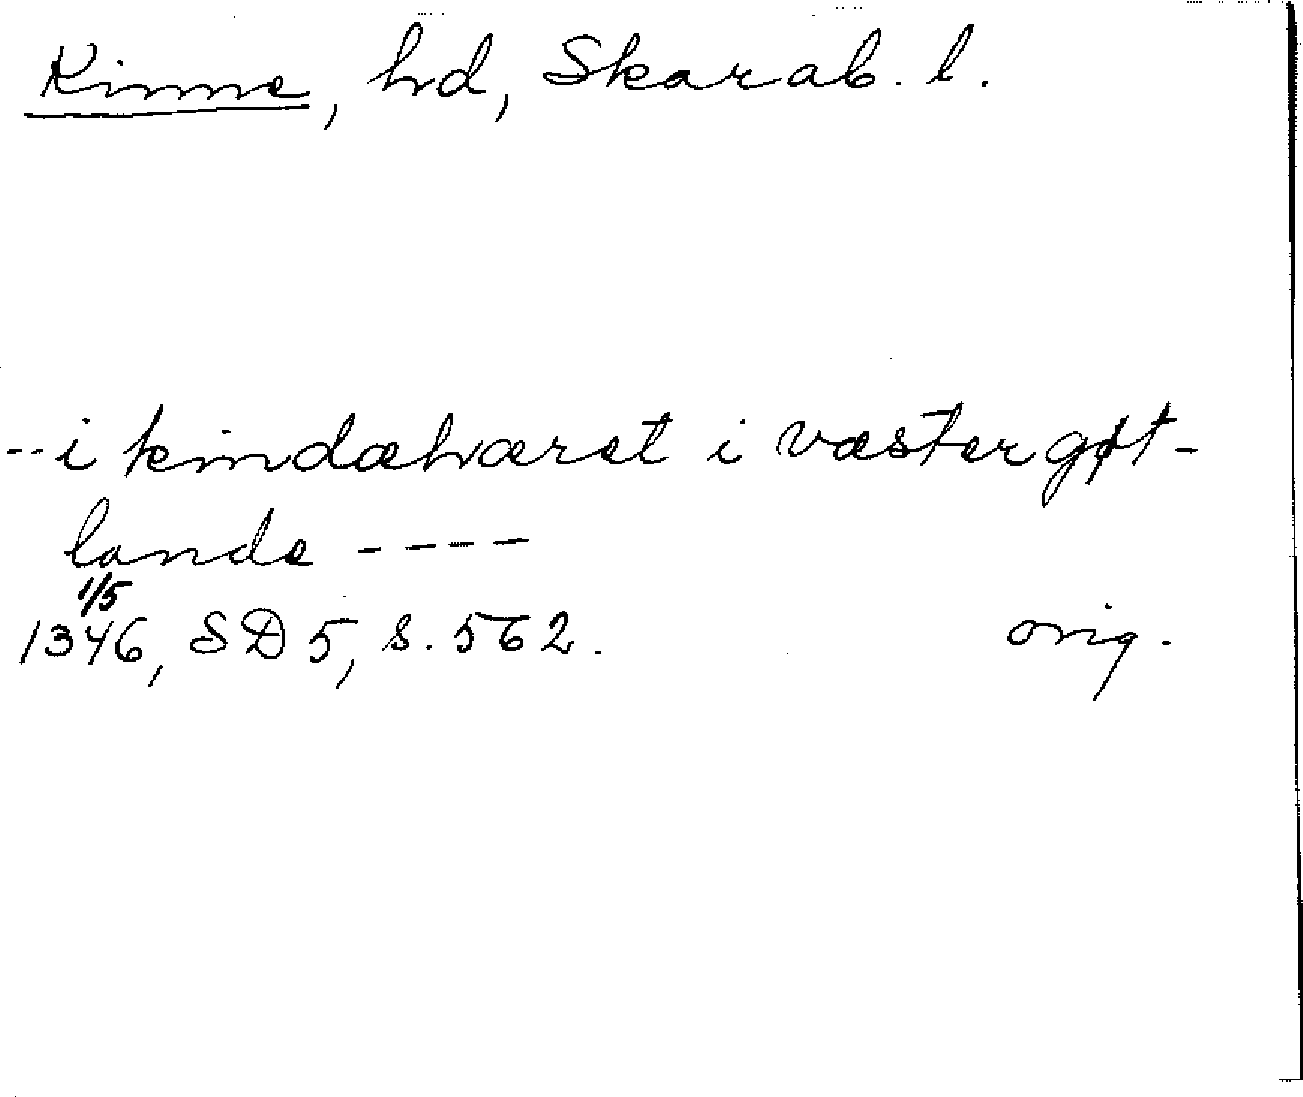 Kinne, hd, Skarab. l.
-- i kindæhæret i væstergøt-
lande ----
1/5
1346, SD 5, s. 562. orig.